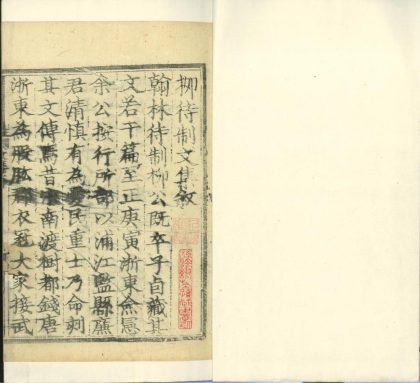 柳待制文集敘
翰林待制柳公既卒子卣藏其
文若干篇至正庚寅浙東僉憲
余公按行所部以浦江監縣廉
君清慎有為愛民重士乃命刻
其文傳焉昔宋南渡樹都錢唐
浙東為股肱郡衣冠大家接武